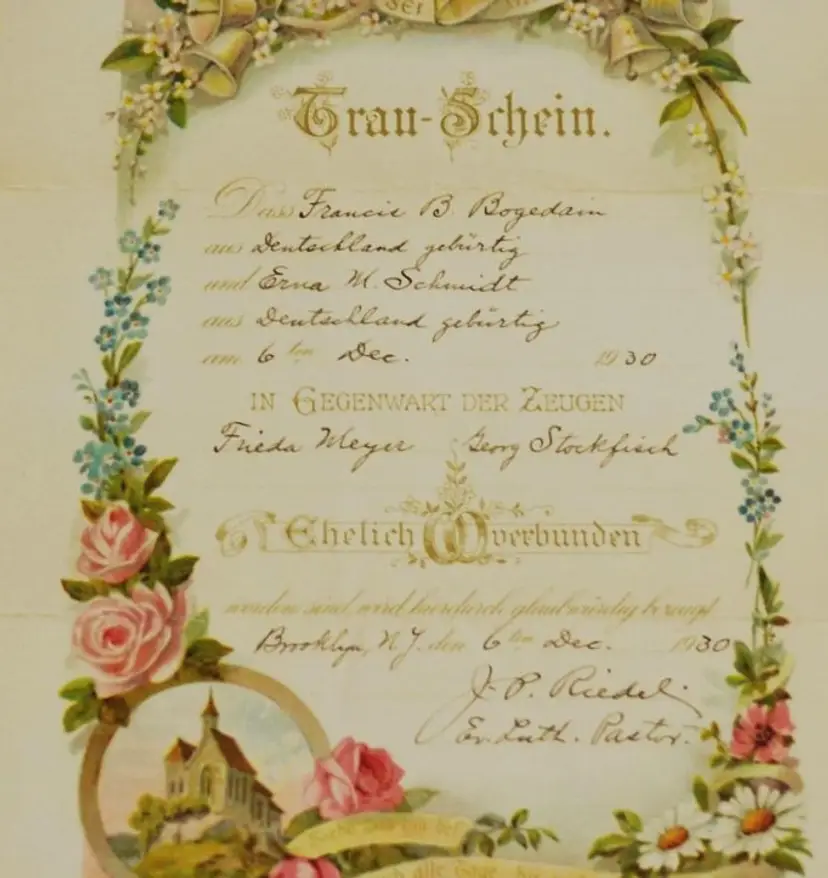 der
Trau-Schein.
Dass Francis B. Bogedain
aus Deutschland gebürtig
und Erna M. Schmidt
aus Deutschland gebürtig
am 6 ten Dec. 1930
IN GEGENWART DER ZEUGEN
Frieda Meyer Georg Stockfisch
Ehelich verbunden
worden sind wird hierdurch glaubwürdig bezeugt
Brooklyn, N.Y. den 6 ten Dec. 1930
J. P. Riedel
Ev. Luth. Pastor.
alle Tage